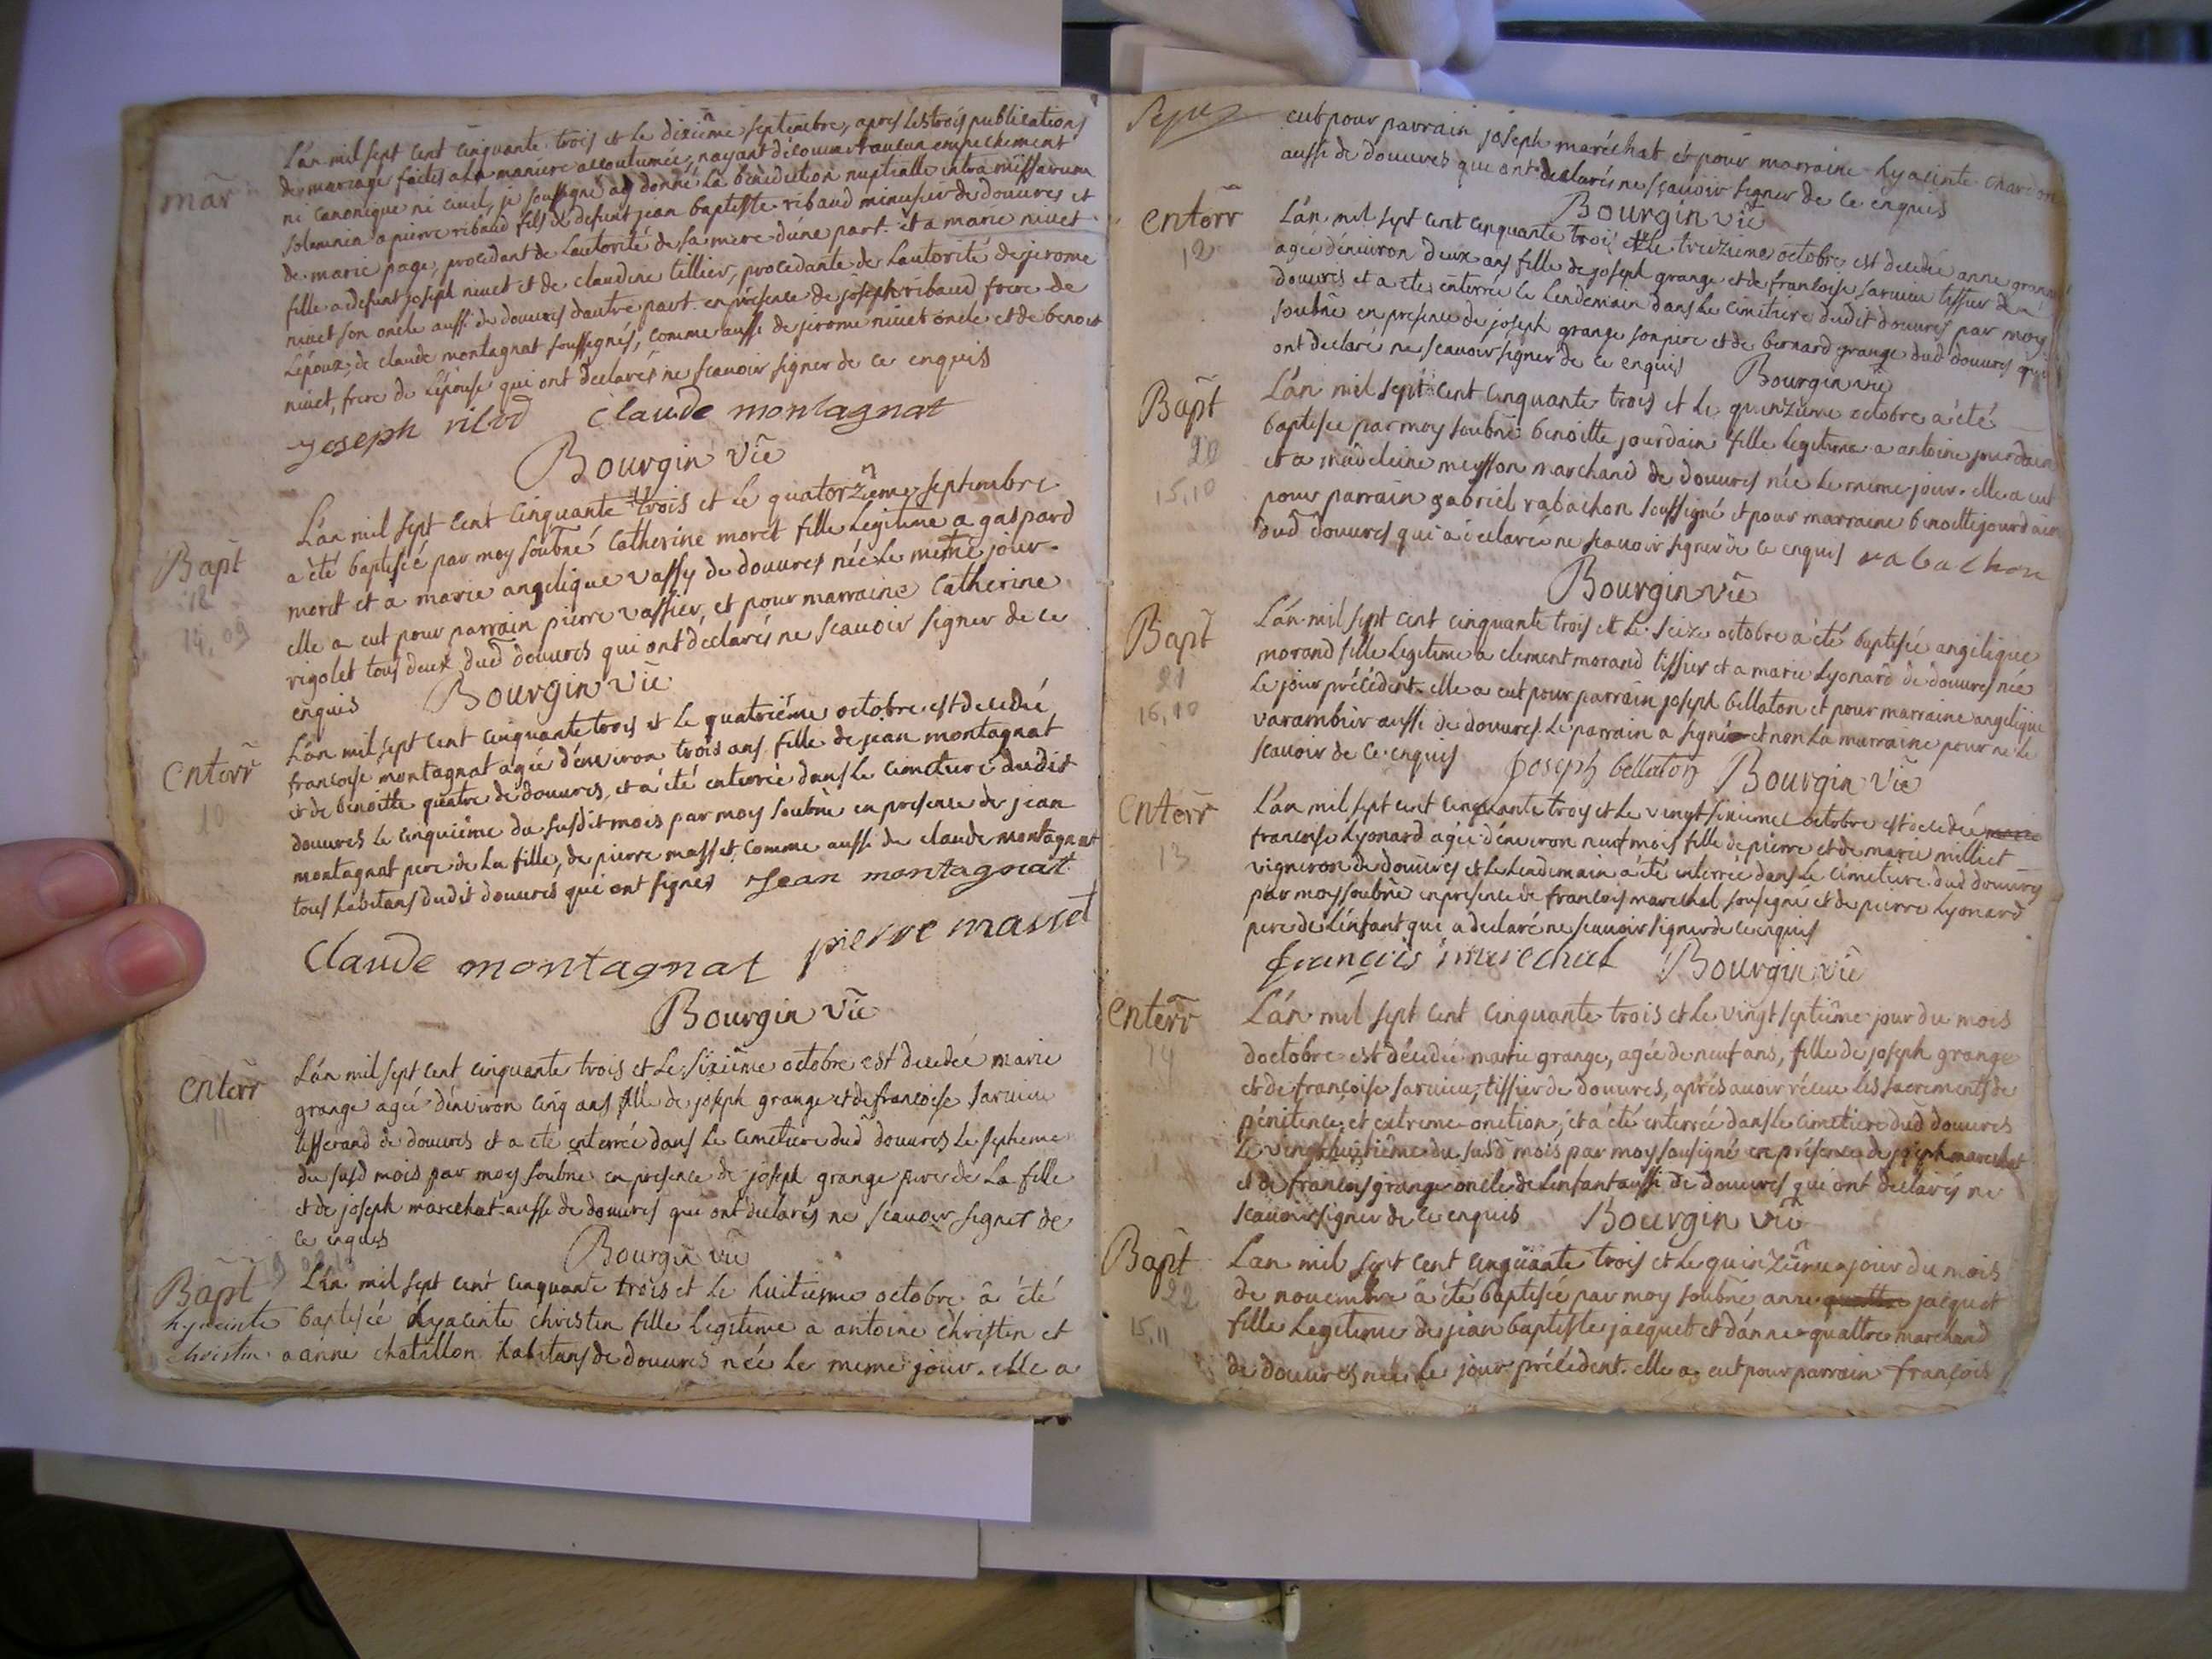 mar
L'an mil sept cent cinquante trois et le dixiême septembre, apres les trois publications
de mariage faites a la maniere accoutumée, nayant découvert aucun empechement
ni canonique ni civil, je soussigné ay donné la bénédiction nuptialle intra missarum
solemnia a pierre ribaud fils de defunt jean baptiste ribaud menusier de douvres et
de marie page, procedant de lautorité de sa mere d'une part. et a marie nivet
fille a defunt joseph nivet et de claudine tillier, procedante de lautorité de jerome
nivet son oncle aussi de douvres dautre part. en présence de joseph ribaud frere de
L'époux, de claude montagnat soussignés, comme aussi de jerome nivet oncle et de benoit
nivet, frere de l'épouse qui ont déclarés ne scavoir signer de ce enquis
Joseph ribod Claude montagnat
Bourgin vic̃
Bapt̃
18
14,09
L'an mil sept cent cinquante trois et le quatorziême septembre
a été baptisée par moy soubné Catherine moret fille legitime a gaspard
moret et a marie angelique vassy de douvres née le même jour.
elle a eut pour parrain pierre vassier, et pour marraine Catherine
rigolet tous deux dud douvres qui ont déclarés ne scavoir signer de ce
enquis Bourgin vic̃
enterr̃
10
L'an mil sept cent cinquante trois et le quatriême octobre est decedée
francoise montagnat agée d'environ trois ans fille de jean montagnat
et de benoitte quatre de douvres, et a été enterrée dans le cimetiere dudit
douvres le cinquiême du susdit mois par moy soubné en presence de jean
montagnat pere de la fille, de pierre masset comme aussi de claude montagnat
tous habitans dudit douvres qui ont signés Jean montagnat
Claude montagnat pierre masset
Bourgin vic̃
enterr̃
11
L'an mil sept cent cinquante trois et le sixiême octobre est decedée marie
grange agée d'environ cinq ans fille de joseph grange et de francoise sarvieu
tisserand de douvres et a été enterrée dans le cimetiere dud douvres le septieme
du susd mois par moy soubné en presence de joseph grange pere de la fille
et de joseph marechat aussi de douvres qui ont déclarés ne scavoir signer de
ce enquis Bourgin vic̃
Bapt̃
hyacinte
christin
L'an mil sept cent cinquante trois et le huitieme octobre a été
baptisée hyacinte christin fille legitime a antoine christin et
a anne chatillon habitans de douvres née le meme jour. elle a
eut pour parrain joseph maréchat et pour marraine hyacinte chardon
aussi de douvres qui ont déclarés ne scavoir signer de ce enquis
Bourgin vic̃
enterr̃
12
L'an mil sept cent cinquante trois et le treizieme octobre est decedée anne grange
agée d'environ deux ans fille de joseph grange et de francoise sarvieu tissier de
douvres et a été enterrée le lendemain dans le cimetiere dudit douvres par moy
soubné en presence de joseph grange son pere et de bernard grange dud douvres qui
ont déclaré ne scavoir signer de ce enquis Bourgin vic̃
Bapt̃
20
15,10
L'an mil sept cent cinquante trois et le quinzieme octobre a été
baptisée par moy soubné benoitte jourdain fille legitime a antoine jourdain
et a madeleine meysson marchand de douvres née le meme jour. elle a eut
pour parrain gabriel rabachon soussigné et pour marraine benoitte jourdain
dud douvres qui a déclarée ne scavoir signer de ce enquis rabachon
Bourgin vic̃
Bapt̃
21
16,10
L'an mil sept cent cinquante trois et le seize octobre a été baptisée angelique
morand fille legitime a clement morand tissier et a marie Lyonard de douvres née
le jour précédent. elle a eut pour parrain joseph bellaton et pour marraine angelique
varambier aussi de douvres. le parrain a signé et non la marraine pour ne le
scavoir de ce enquis Joseph bellaton Bourgin vic̃
enterr̃
13
L'an mil sept cent cinquante trois et le vingt sixieme octobre est decedée marie
francoise Lyonard agée d'environ neuf mois fille de pierre et de marie milliet
vigneron de douvres et le lendemain a été enterrée dans le cimetiere dud douvres
par moy soubné en presence de francois marechal sousigné et de pierre Lyonard
pere de l'enfant qui a déclaré ne scavoir signer de ce enquis
françois marechal Bourgin vic̃
enterr̃
14
L'an mil sept cent cinquante trois et le vingt septieme jour du mois
doctobre est décédée marie grange, agée de neuf ans, fille de joseph grange
et de françoise sarvieu, tissier de douvres, aprés avoir récue les sacrements de
pénitence, et extreme onction, et a été enterrée dans le cimetiere dud douvres
le vingt huitiême du susd mois par moy sousigné en présence de joseph marechat
et de francois grange oncle de l'enfant aussi de douvres qui ont déclarés ne
scavoir signer de ce enquis Bourgin vic̃
Bapt
22
15,11
L'an mil sept cent cinquante trois et le quinziême jour du mois
de novembre a été baptisée par moy soubné anne quattre jacquet
fille legitime de jean baptiste jacquet et d'anne quattre marchand
de douvres née le jour précédent. elle a eut pour parrain françois